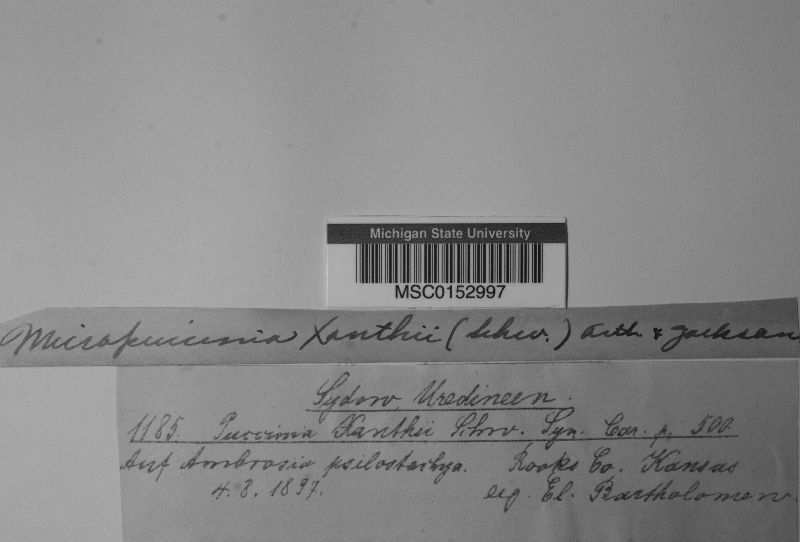 Michigan State University
MSC0152997
Micropuccinia Xanthii (Schw.) Arth. & Jackson
Sydow, Uredineen.
1185. Puccinia Xanthii Schw. Syn. Car. p. 500.
Auf Ambrosia psilostachya. Rooks Co. Kansas
4. 8. 1897. leg. El. Bartholomew.